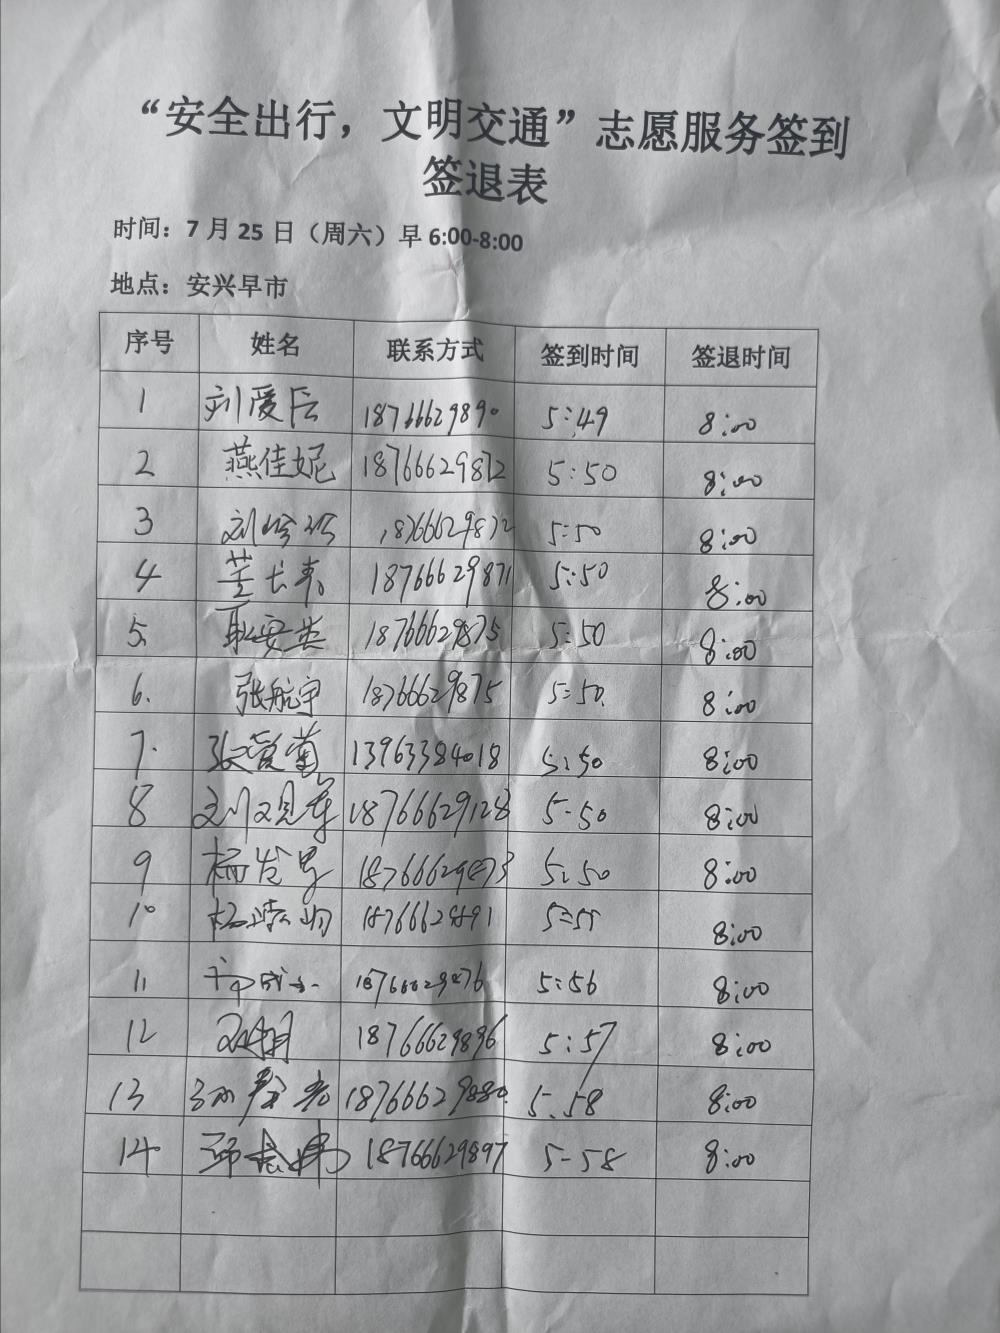 “安全出行，文明交通”志愿服务签到
签退表
时间：7月25日（周六）早6:00-8:00
地点：安兴早市
序号 姓名 联系方式 签到时间 签退时间
1 刘爱辰 18766629890 5:49 8:00
2 燕佳妮 18766629872 5:50 8:00
3 刘 18766629872 5:50 8:00
4 董长春 18766629871 5:50 8:00
5. 耿安英 18766629875 5:50 8:00
6. 张航宇 18766629875 5:50. 8:00
7. 张爱菊 13963384018 5:50 8:00
8 刘观军 18766629128 5-50 8:00
9 杨 18766629873 5:50 8:00
10 杨 18766629891 5:55 8:00
11 18766629876 5:56 8:00
12 18766629896 5:57 8:00
13 18766629880. 5.58 8:00
14 18766629897 5-58 8:00